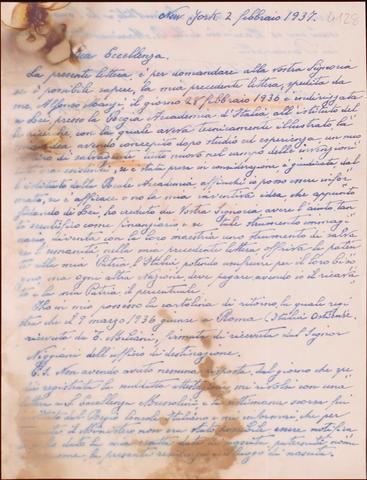 New York 2 febbraio 1937. 4128
Eccellenza.
La presente lettera, è per domandare alla Vostra Signoria
se è possibile sapere, la mia precedente lettera, spedita da
me Alfonso il giorno 28 febbraio 1936 e indirizzata
a Lei, presso la Regia Accademia d'Italia, all'istituto del
le ricerche con la quale avevo tecnicamente illustrato la
idea avendo concepito dopo studio ed esperienza un nuo
di salvataggio nuovo nel campo delle invenzioni
esistenti, se è stata presa in considerazione, e giudicata dal
l'istituto della Reale Accademia, affinchè io possa essere infor
mato, se è efficace o no la mia inventiva idea, che appunto
fidando in Lei, ho creduto da Vostra Signoria, avere l'aiuto tan
to scientifico come finanziario e se tale strumento immagi
nario, diventa con la loro maestria uno strumento di salva
re l'umanità, nella mia precedente lettera offrivo la paten
te alla mia Patria l'Italia potendo usufruire per il loro biso
gno, ma ogni altra Nazione, deve pagare, avendo io il ricavato
e la mia Patria il percentuale.
Ho in mio possesso la cartolina di ritorno, la quale regi
stra che il 9 marzo 1936 giunse a Roma (Italia) Ostiense
ricevuta da E. Miliani, firmata di ricevuta dal Signor
dell'ufficio di destinazione.
E. I. Non avendo avuto nessuna risposta, dal giorno che spe
dii registrata la suddetta mi rivolsi con una
lettera a S. Eccellenza Mussolini e la settimana scorsa fui
dal Regio Console Italiano e mi informai che per
il Ministero non era stato possibile avere notifica
la mia esatta data di nascita, paternità, nomi
come la presente residenza e luogo di nascita.